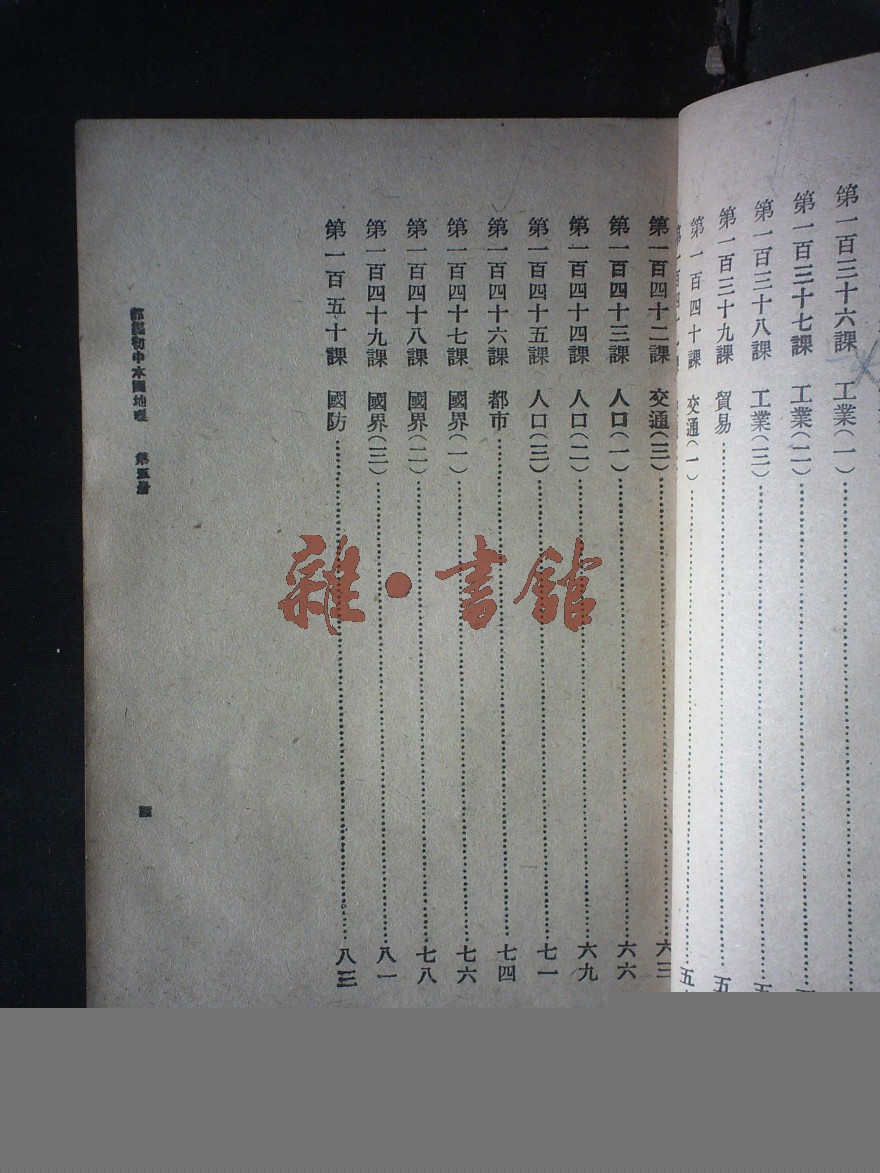 第一百三十六課 工業(一)
第一百三十七課 工業(二)
第一百三十八課 工業(三)
第一百三十九課 貿易 五
第一百四十課 交通(一) 五
第一百四十二課 交通(三) 六三
第一百四十三課 人口(一) 六六
第一百四十四課 人口(二) 六九
第一百四十五課 人口(三) 七一
第一百四十六課 都市 七四
第一百四十七課 國界(一) 七六
第一百四十八課 國界(二) 七八
第一百四十九課 國界(三) 八一
第一百五十課 國防 八三
初中本國地理 第五册
四
雜·書館